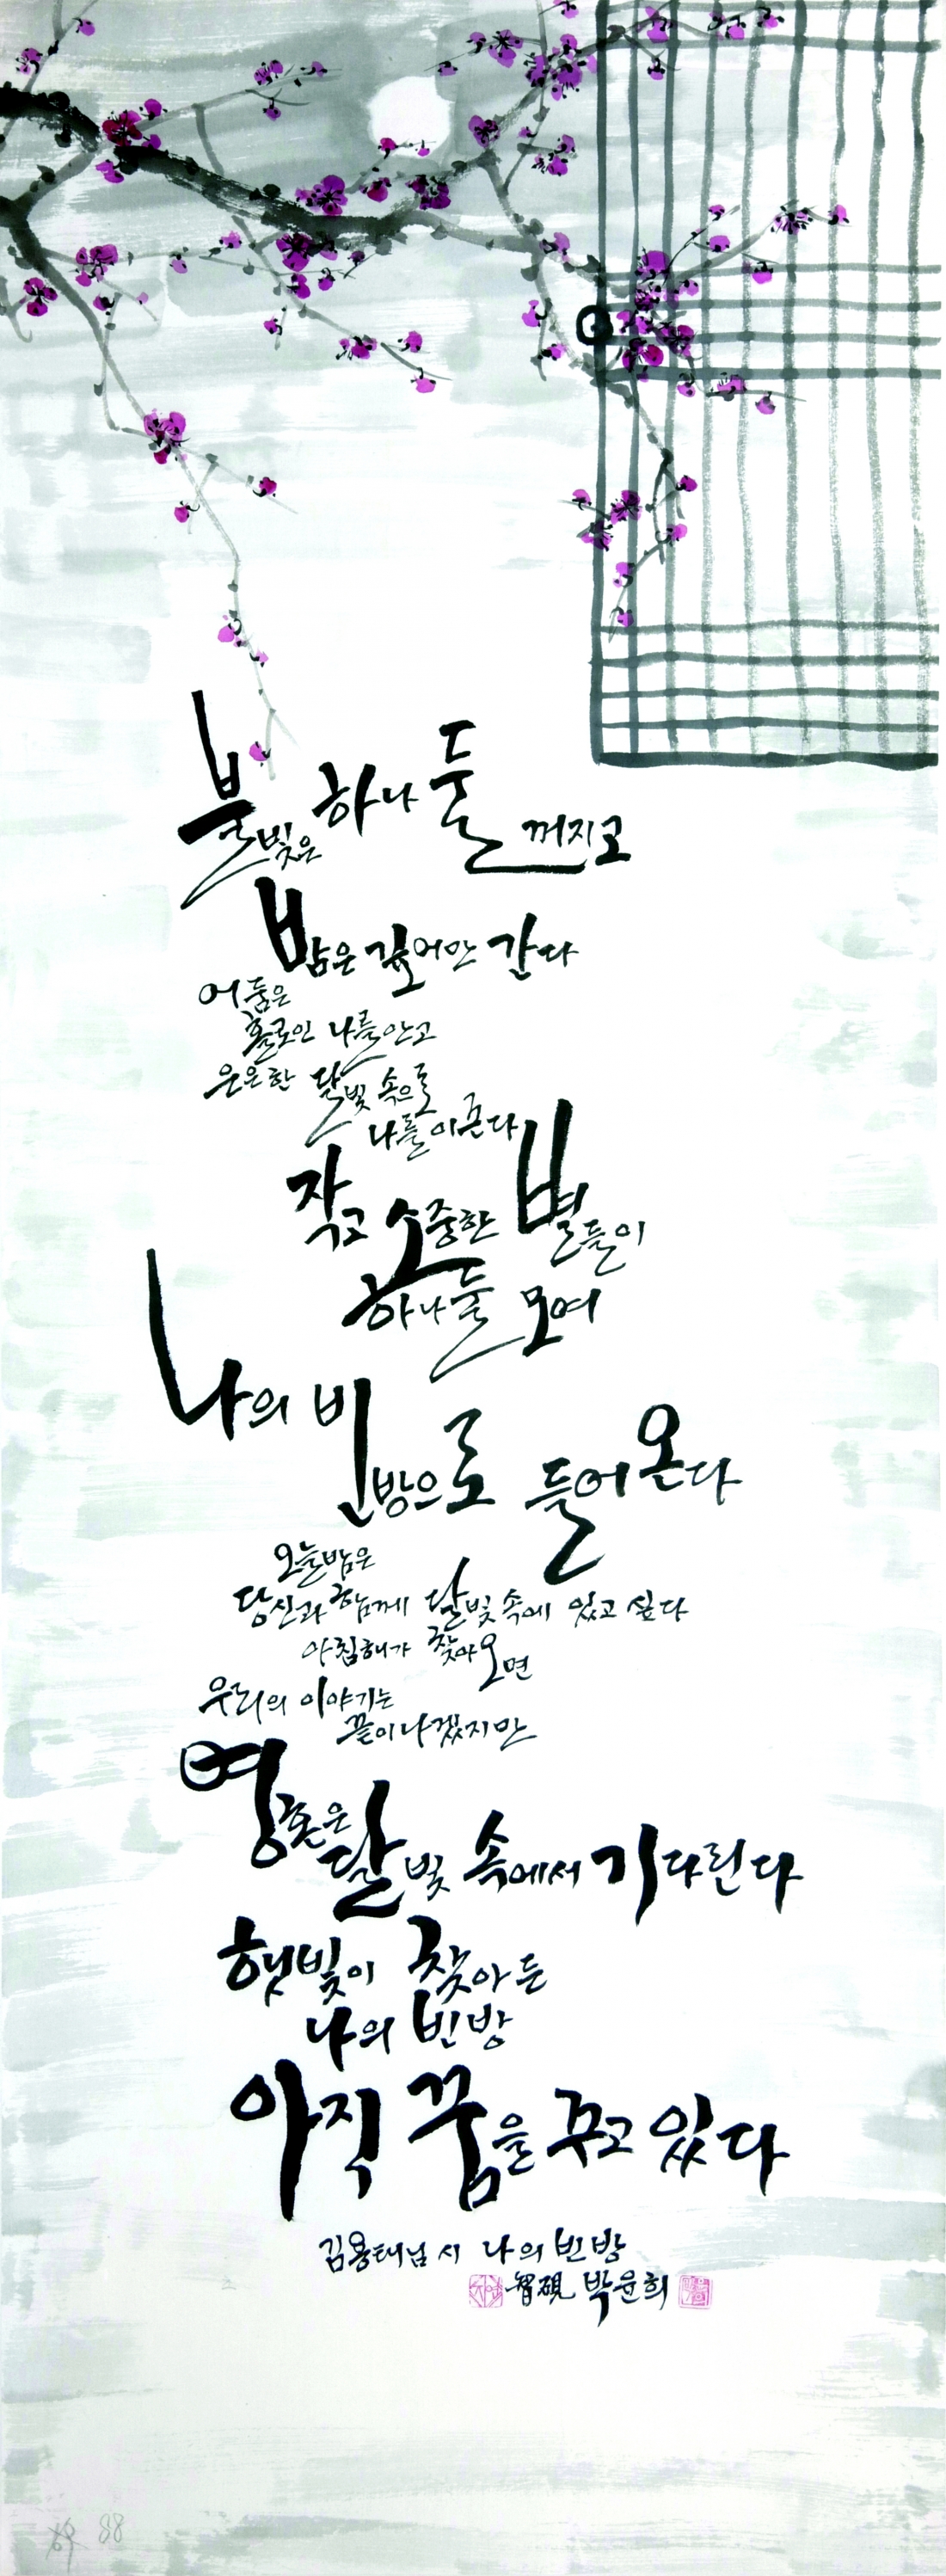 불빛은 하나 둘 꺼지고
밤은 깊어만 간다
어둠은
홀로인 나를 안고
은은한 달빛 속으로
나를 이끈다
작고 소중한 별들이
하나 둘 모여
나의 빈방으로 들어온다
오늘밤은
당신과 함께 달빛 속에 있고 싶다
아침해가 찾아오면
우리의 이야기는
끝이나겠지만
영혼은 달빛 속에서 기다린다
햇빛이 찾아든
나의 빈방
아직 꿈을 꾸고 있다
김용태님 시 나의 빈방
智硯 박윤희
88